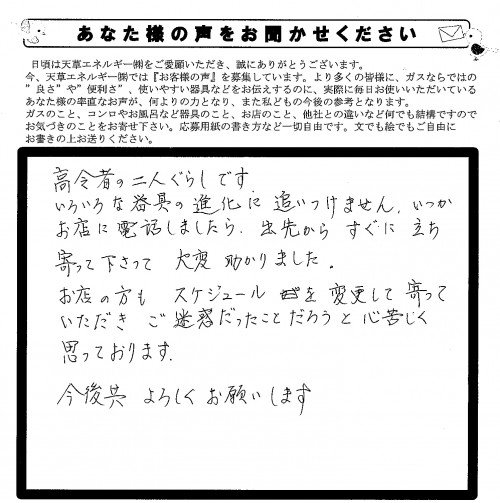 あなた様の声をお聞かせください
日頃は天草エネルギー㈱をご愛顧いただき、誠にありがとうございます。
今、天草エネルギー㈱では『お客様の声』を募集しています。より多くの皆様に、ガスならではの
”良さ”や”便利さ”、使いやすい器具などをお伝えするのに、実際に毎日お使いいただいている
あなた様の率直なお声が、何よりの力となり、また私どもの今後の参考となります。
ガスのこと、コンロやお風呂など器具のこと、お店のこと、他社との違いなど何でも結構ですので
お気づきのことをお寄せ下さい。応募用紙の書き方など一切自由です。文でも絵でもご自由に
お書きの上お送りください。
高令者の二人ぐらしです.
いろいろな器具の進化に追いつけません. いつか
お店に電話しましたら、出先からすぐに立ち
寄って下さって 大変 助かりました。
お店の方も スケジュール を変更して寄って
いただき ご迷惑だったことだろうと心苦しく
思っております.
今後共 よろしくお願いします